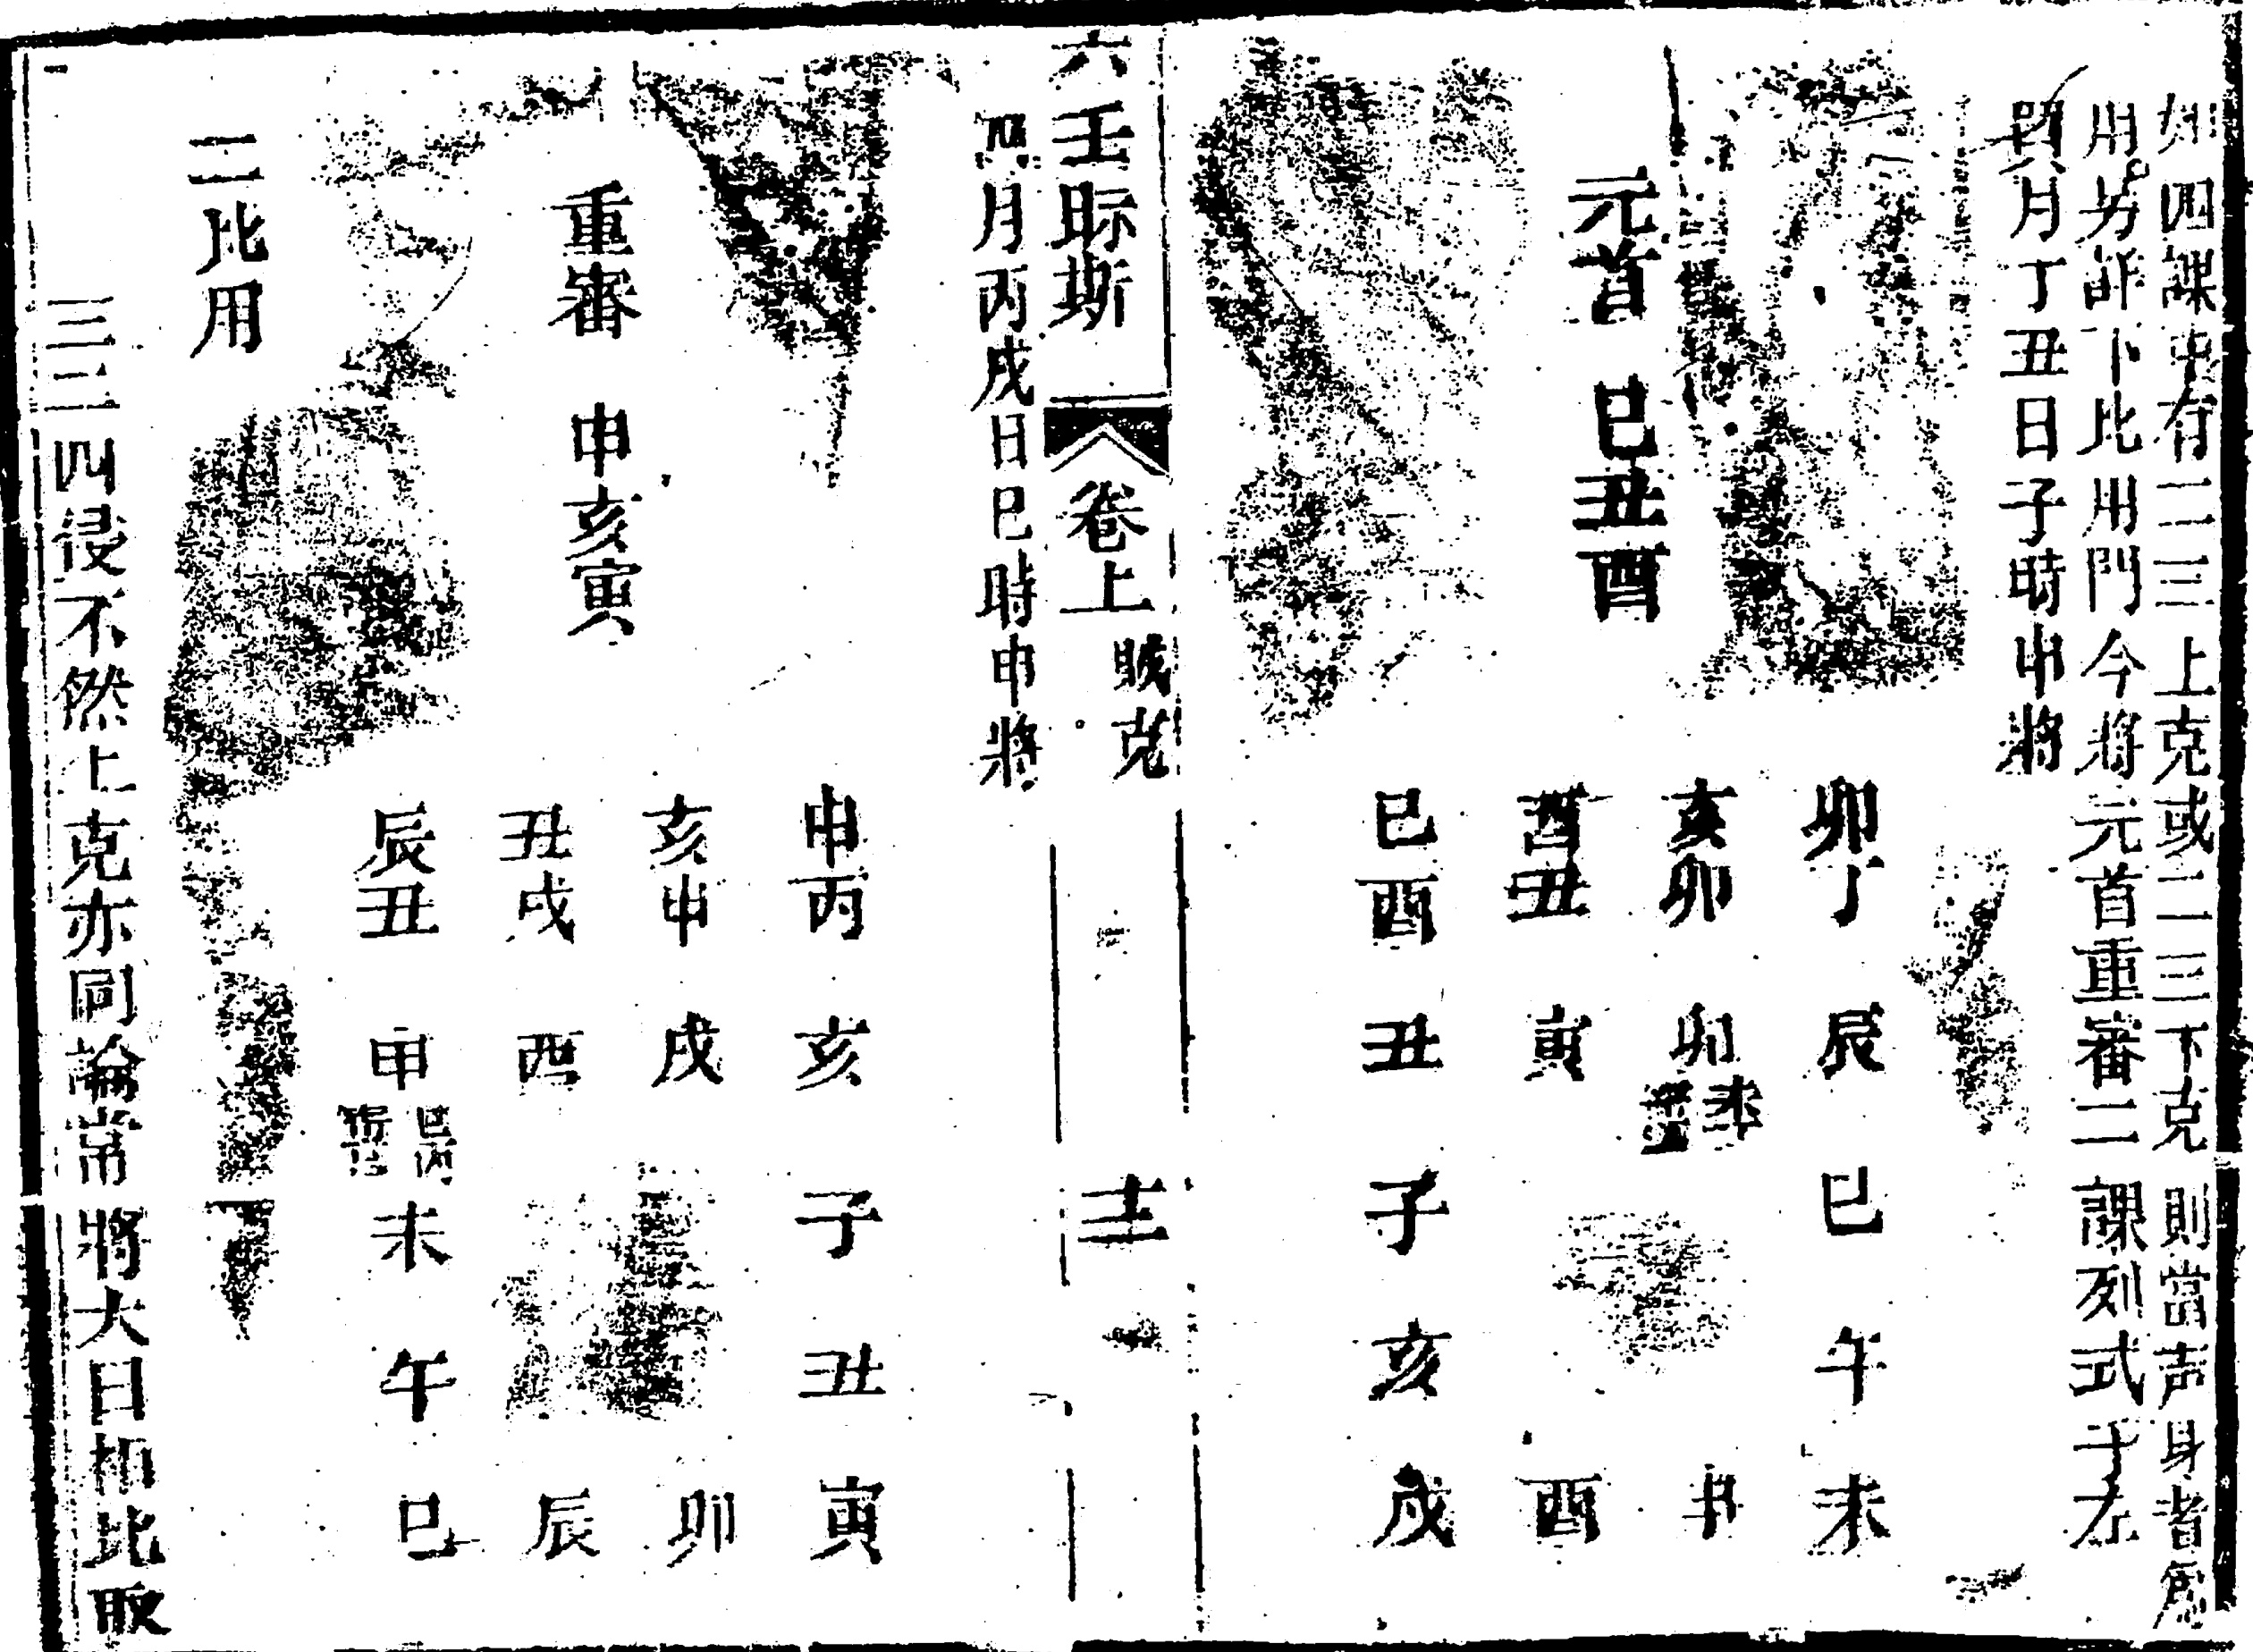 如四課中有二三上克或二三下克則當声身者為
用另詳下比用門今將元首重審二課列式于左
四月丁丑日子時申將
元首 巳丑酉
卯丁 辰 巳 午 未
亥卯 卯 申
酉丑 寅 酉
巳酉 丑 子 亥 戌
六壬眎斯 卷上 賊克 十二
四月丙戌日巳時申將
重審 申亥寅
申丙 亥 子 丑 寅
亥申 戌 卯
丑戌 酉 辰
辰丑 申 未 午 巳
二比用
三二四侵不然上克亦同論常將大日相比取